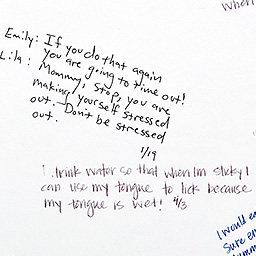 When
Emily: If you do that again
you are going to time out!
Lila: Mommy, stop, you are
making yourself stressed
out. Don't be stressed
out.
1/19
I drink water so that when I'm sticky I
can use my tongue to lick because
my tongue is wet! 4/3
I would ea
sure em